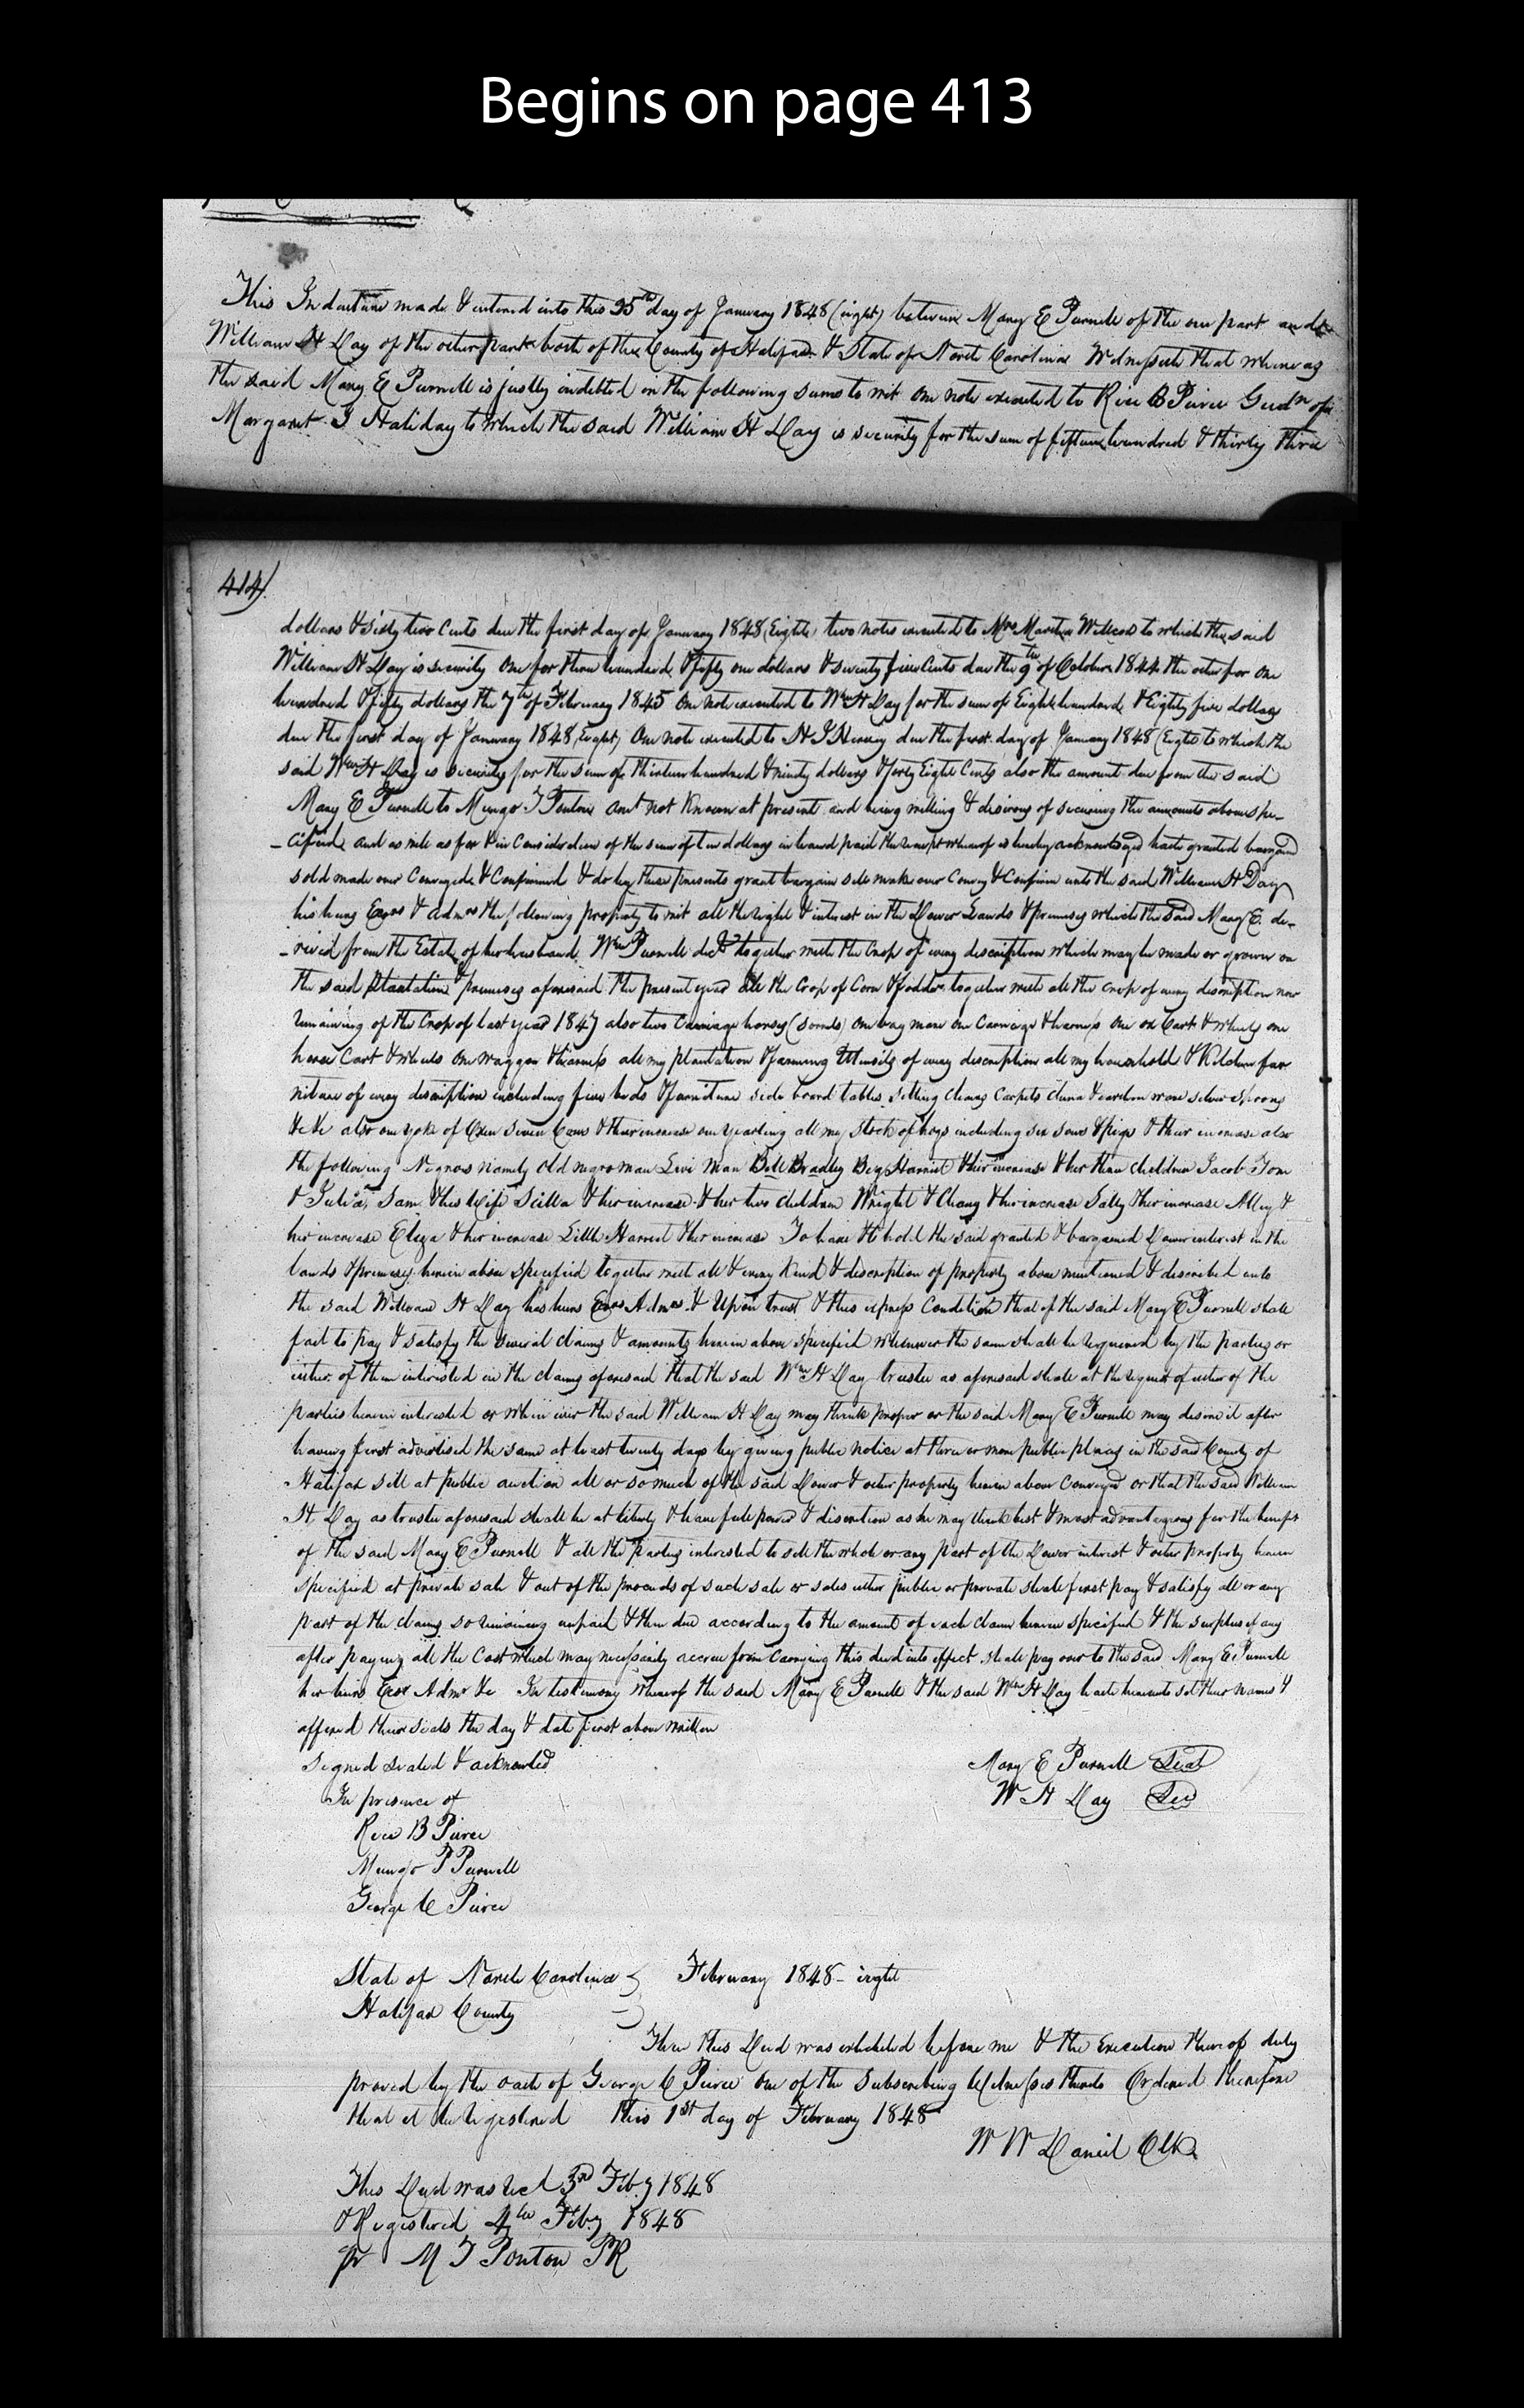 Begins on page 413
This Indenture made & entered into this 25th day of January 1848 (eight) between Mary E Purnell of the one part and
William H Day of the other part both of the County of Halifax & State of North Carolina Witnesseth that whereas
the said Mary E Purnell is justly indebted in the following sums to wit one note executed to Rice B Pierce Gudn of
Margaret J Haliday to which the said William H Day is security for the sum of fifteen hundred & thirty three
414)
dollars & sixty two Cents due the first day of January 1848 (Eight) two notes executed to Mrs Martha Willcox to which the said
William H Day is security One for three hundred & fifty one dollars & seventy five Cents due the 9th of October 1844 the other for one
hundred & fifty dollars the 7th of February 1845 One note executed to Wm H Day for the sum of Eight hundred & Eighty five dollars
due the first day of January 1848 (Eight) One note executed to H J Hervey due the first day of January 1848 (Eight) to which the
said Wm H Day is security for the sum of thirteen hundred & ninety dollars & forty Eight Cents also the amount due from the said
Mary E Purnell to Mungo T Ponton amt not Known at present and being willing & desirous of securing the amounts above spe-
-cified and as well as for & in Consideration of the sum of ten dollars in hand paid the receipt whereof is hereby acknowledged hath granted bargained
sold made over Conveyed & Confirmed & do by these presents grant bargain sell make over Convey & Confirm unto the said William H Day
his heirs Exors & Admrs the following property to wit all the right & interest in the Dower Lands & premises which the said Mary E. de-
-rived from the Estate of her husband Wm Purnell decd together with the Crop of every description which may be made or grown on
the said Plantation & premises aforesaid the present year all the Crop of Corn & fodder together with all the crop of every description now
remaining of the Crop of last year 1847 also two Carriage horses (sorrels) one bay mare one Carriage & harness one ox Cart & wheels one
horse Cart & wheels One waggon & harness all my plantation & farming Utensils of every description all my household & Kitchen fur
niture of every description including five beds & furniture side board tables setting chairs Carpets china & earthen ware silver spoons
&c &c also one yoke of Oxen Seven Cows & their increase one yearling all my stock of hogs including six sows & pigs & their increase also
the following Negroes namely Old negro man Levi Man Bill Bradley Big Harriet & her increase & her three children Jacob Tom
& Julia, Sam & his Wife Scilla & her increase & her two children Wright & Chany & her increase Sally & her increase Alley &
her increase Eliza & her increase Little Harriet & her increase To have & to hold the said granted & bargained Dower interest in the
lands & premises herein above specified together with all & every Kind & description of property above mentioned & described unto
the said William H Day his heirs Exors Admrs & Upon trust & this express Condition that if the said Mary E Purnell shall
fail to pay & satisfy the several claims & amounts herein above specified whenever the same shall be required by the parties or
either of them interested in the claims aforesaid that the said Wm H Day trustee as aforesaid shall at the request of either of the
parties herein interested or when ever the said William H Day may think proper or the said Mary E Purnell may desire it after
having first advertised the same at least twenty days by giving public notice at three or more public places in the said County of
Halifax sell at public auction all or so much of the said Dower & other property herein above Conveyed or that the said William
H Day as trustee aforesaid shall be at liberty & have full power & discretion as he may think best & most advantageous for the benefit
of the said Mary E Purnell & all the Parties interested to sell the whole or any part of the Dower interest & other property herein
specified at private sale & out of the proceeds of such sale or sales either public or private shall first pay & satisfy all or any
part of the claims so remaining unpaid & then due according to the amount of each claim herein specified & the surplus if any
after paying all the Cost which may necessarily accrue from carrying this deed into effect shall pay over to the said Mary E Purnell
her heirs Exor Admr &c In testimony whereof the said Mary E Purnell & the said Wm H Day hath hereunto set their names &
affixed their seals the day & date first above written
Signed sealed & acknowled
In presence of
Mary E Purnell Seal
W H Day Seal
Rice B Pierce
Mungo P Purnell
George C Pierce
State of North Carolina February 1848 - eight
Halifax County
Then this Deed was exhibited before me & the Execution thereof duly
proved by the oath of George C Pierce one of the Subscribing Witnesses thereto Ordered therefore
that it be registered this 1st day of February 1848
W W Daniel Clk
This Deed was recd 3rd Feby 1848
& Registered 4th Feby 1848
pr M T Ponton PR